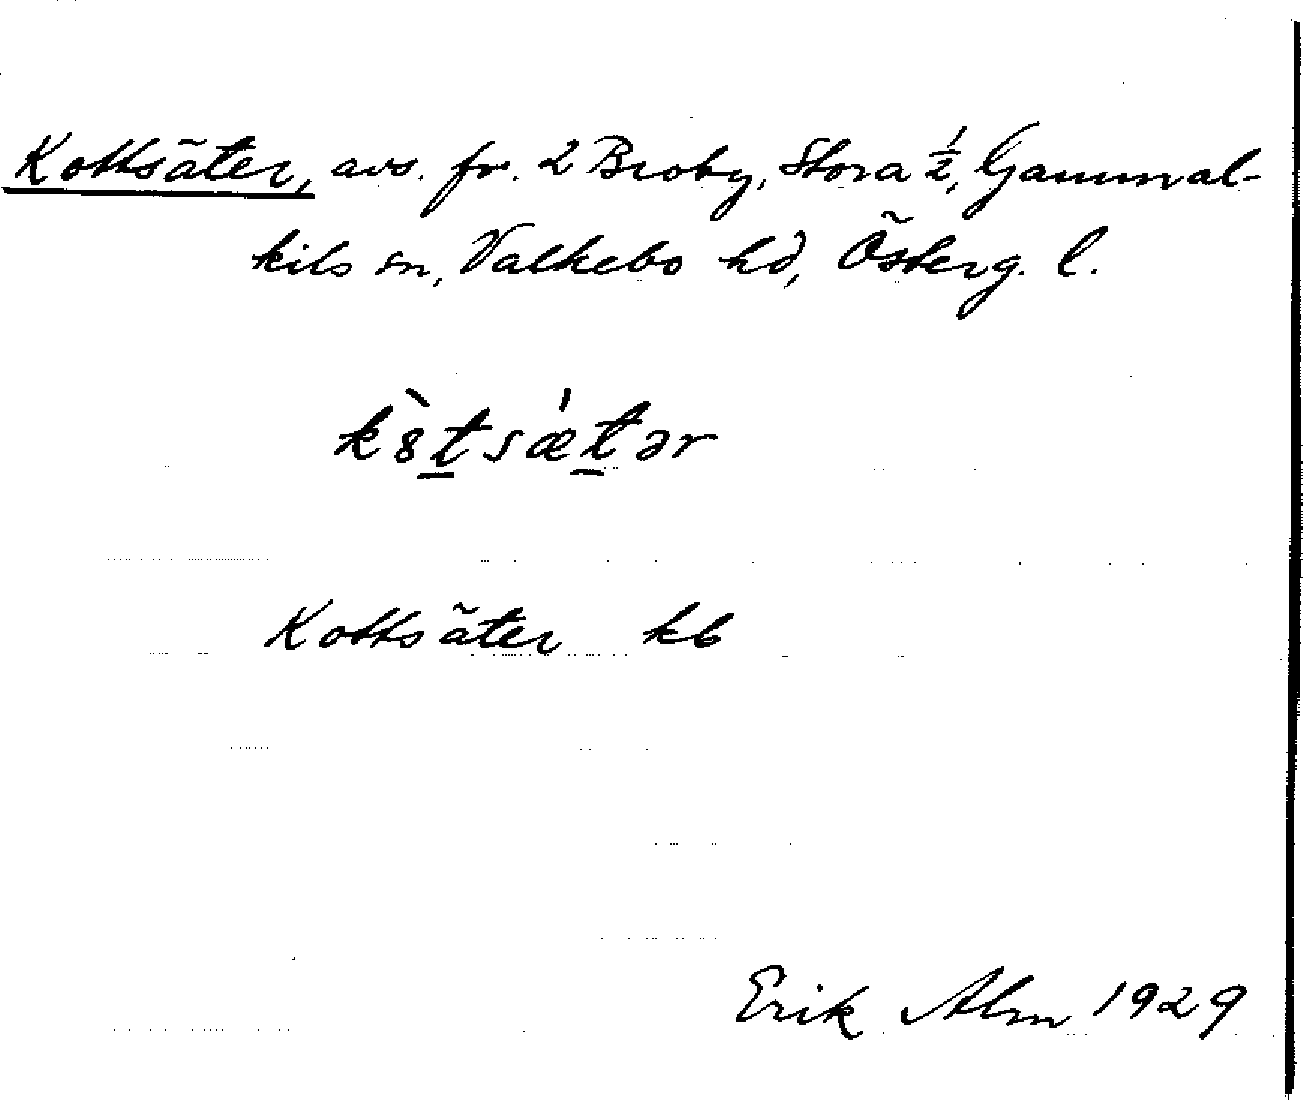 Kottsäter, avs. fr. 2 Broby, Stora ½, Gammal-
kils sn, Valkebo hd, Österg. l.
kȣ̀t̠sǽt̠ər
Kottsäter kb
Erik Alm 1929